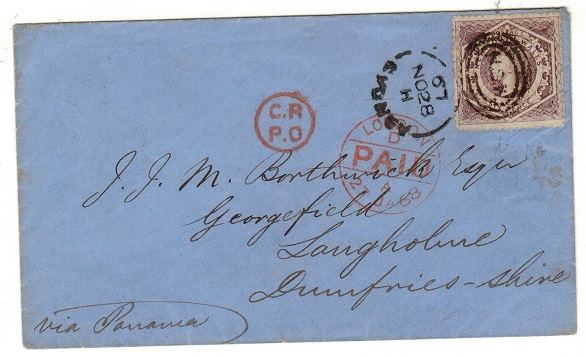 SYDNEY
NO 28
67
H
C.R
P.O
LONDON
D
PAID
27 JA 68
J. J. M. Borthwick Esqr
Georgefield
Langholme
Dumfries-shire
via Panama